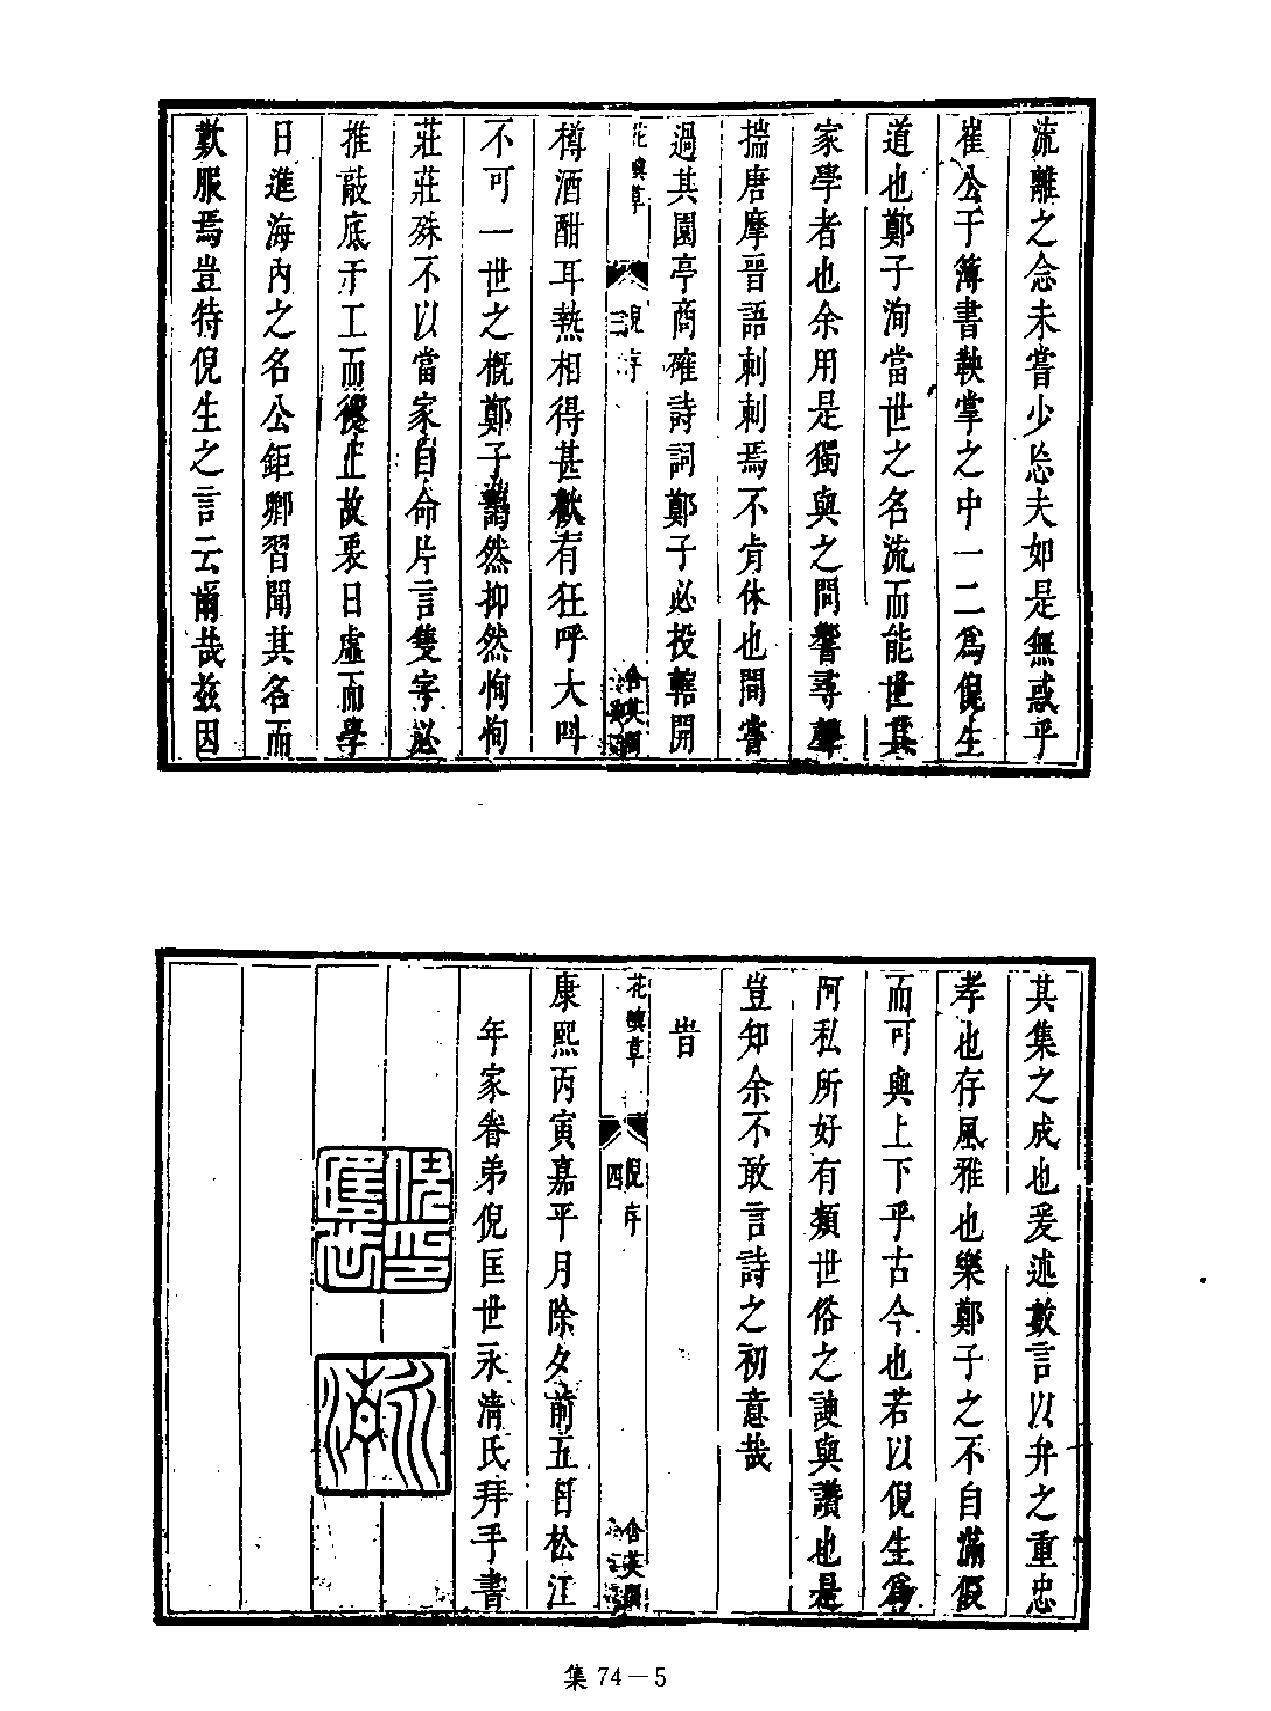 流離之念未嘗少忘夫如是無惑乎
崔公于簿書鞅掌之中一二爲倪生
道也鄭子洵當世之名流而能世其
家學者也余用是獨與之問響尋聲
揣唐摩晉語刺刺焉不肯休也間嘗
過其園亭商確詩詞鄭子必投轄開
花嶼草 倪序 三
樽酒酣耳熱相得甚歡有狂呼大呌
不可一世之槪鄭子藹然抑然恂恂
莊莊殊不以當家自命片言隻字必
推敲底于工而後止故裒日虛而學
日進海內之名公鉅卿習聞其名而
歎服焉豈特倪生之言云爾哉兹因
其集之成也爰述數言以弁之重忠
孝也存風雅也樂鄭子之不自滿假
而可與上下乎古今也若以倪生爲
阿私所好有類世俗之諛與讚也是
豈知余不敢言詩之初意哉
旹
花嶼草 倪序 四 含英閣
康熙丙寅嘉平月除夕前五日松江
年家眷弟倪匡世永淸氏拜手書
倪匡世印
永淸
集 74－5